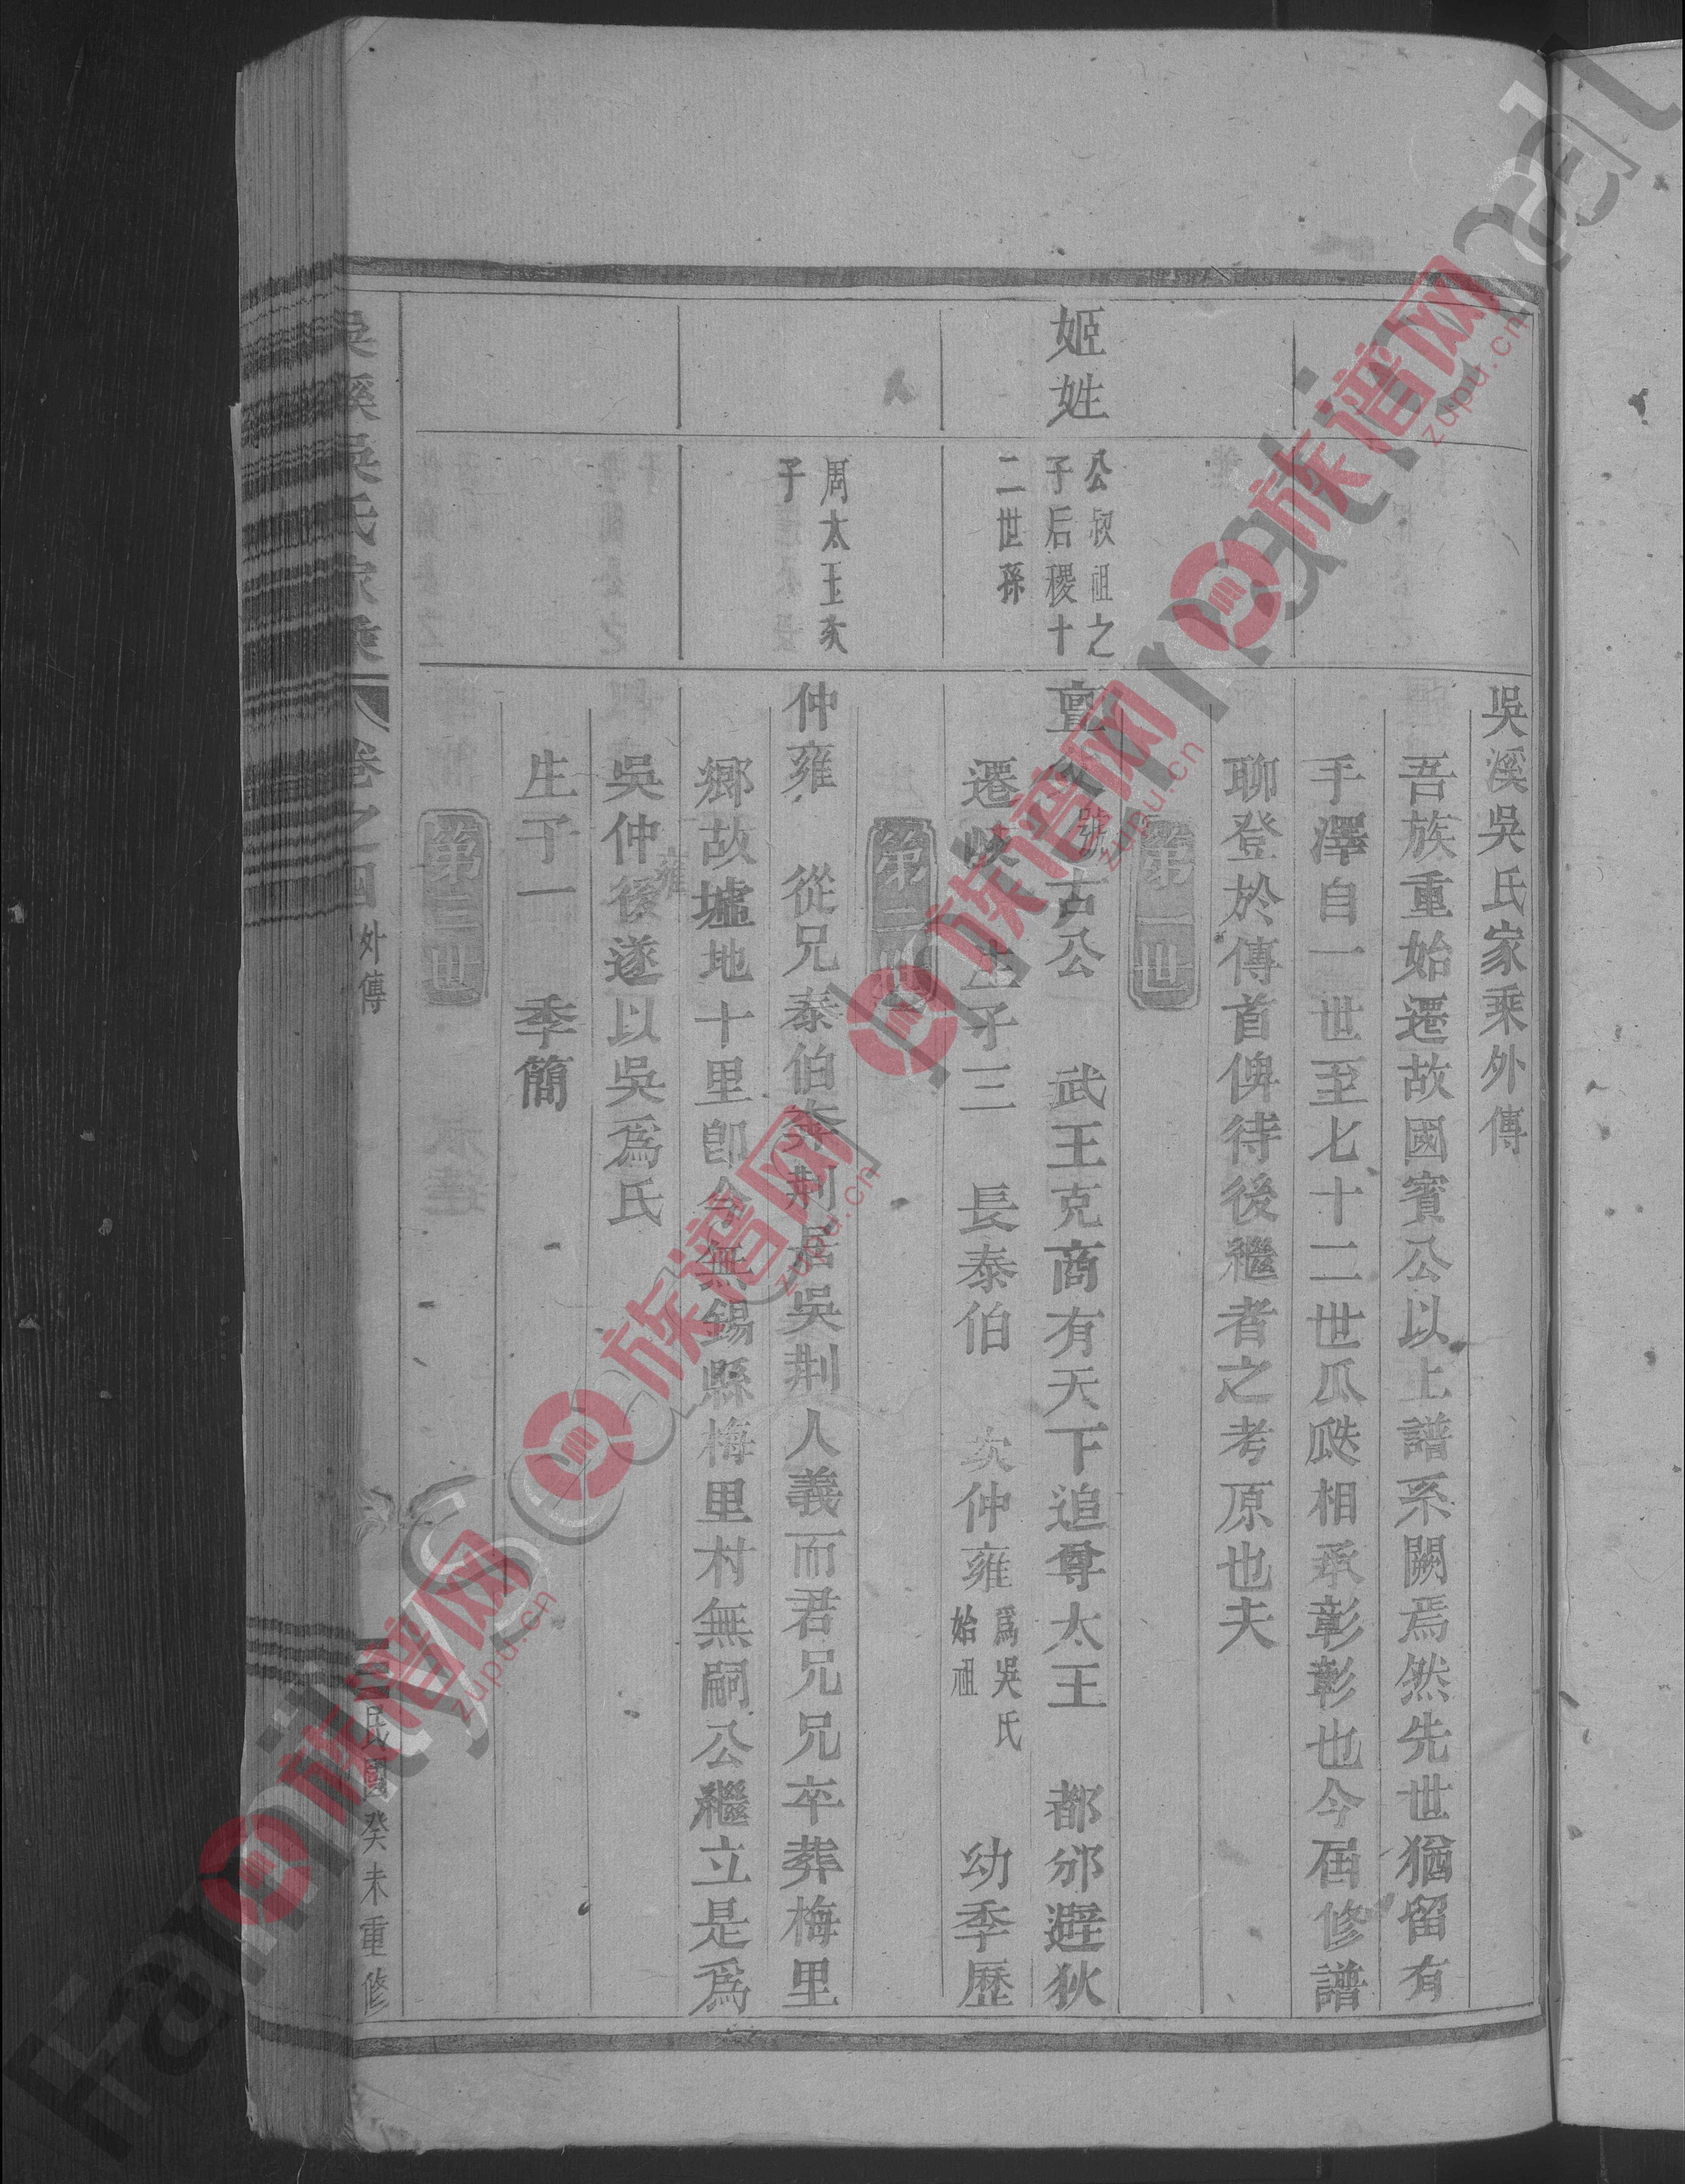 吳溪吳氏家乘外傳
吾族重始遷故國賓公以上譜系闕焉然先世猶留有
手澤自一世至七十二世瓜瓞相承彰彰也今屆修譜
聊登於傳首俾待後繼者之考原也夫
第一世
姬姓
公叔祖之
子后稷十
二世孫
亶父號古公 武王克商有天下追尊太王 都邠避狄
遷岐 生子三 長泰伯 次仲雍
爲吳氏
始祖
幼季歷
第二世
周太王亥
子
仲雍 從兄泰伯奔荆居吳荆人義而君兄兄卒葬梅里
鄉故墟地十里卽今無錫縣梅里村無嗣公繼立是爲
吳仲雍後遂以吳爲氏
生子一 季簡
第三世
吳溪吳氏家乘
卷之四
外傳
民國癸未重修
族谱网
zupu.cn
族谱网
zupu.cn
族谱网
zupu.cn
族谱网
zupu.cn